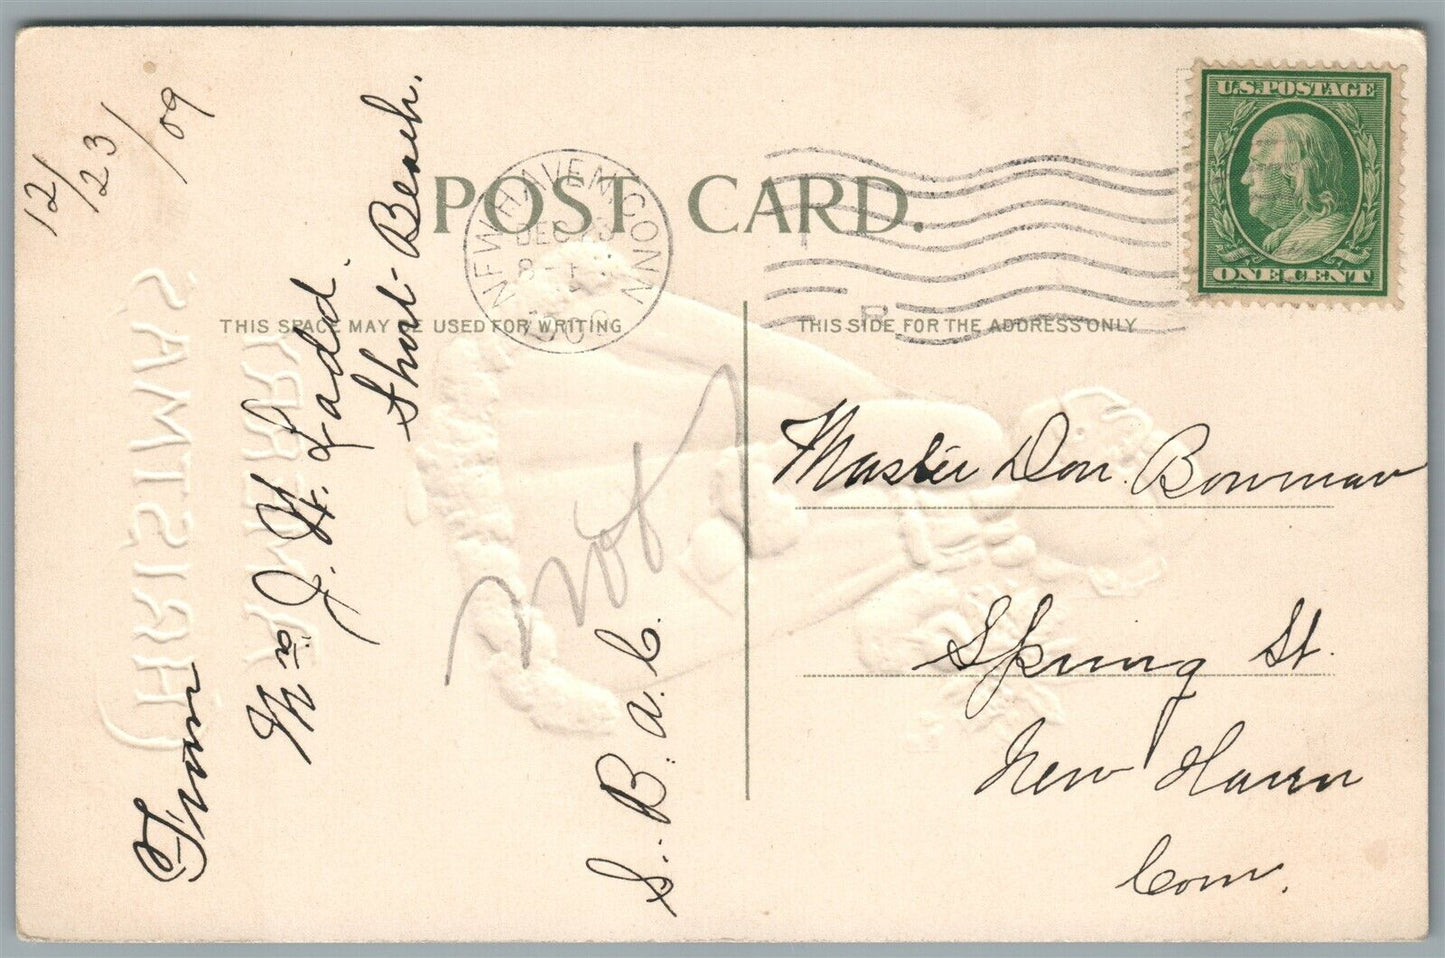 12/23/09
POST CARD.
U.S. POSTAGE
ONE CENT
NEW HAVEN, CONN
DEC
THIS SPACE MAY BE USED FOR WRITING
THIS SIDE FOR THE ADDRESS ONLY
From
J. H. Ladd.
Short-Beach.
S. B. a. C.
Master Don. Bowman
Spring St.
New Haven
Conn.
MERRY
CHRISTMAS